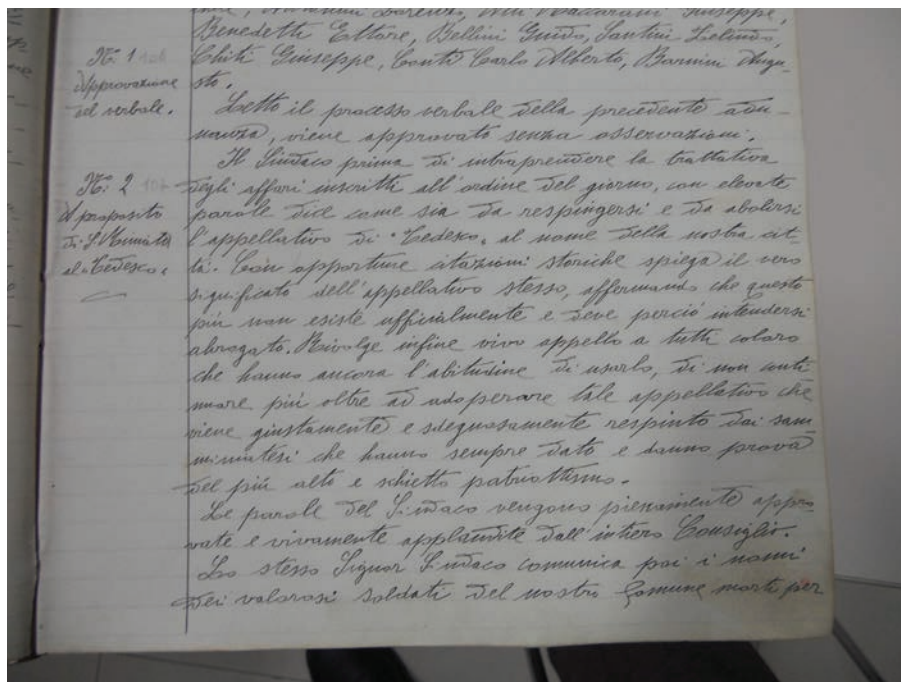 Benedetti Ettore, Bellini Guido, Santini Zelindo,
Chiti Giuseppe, Conti Carlo Alberto, Bannini Augu-
sto.
N.° 1
Approvazione
del verbale.
Letto il processo verbale della precedente adu-
nanza, viene approvato senza osservazioni.
N.° 2
A proposito
di S. Miniato
al "Tedesco"
Il Sindaco prima di intraprendere la trattativa
degli affari inscritti all'ordine del giorno, con elevate
parole dice come sia da respingersi e da abolirsi
l'appellativo di "Tedesco" al nome della nostra cit-
tà. Con opportune citazioni storiche spiega il vero
significato dell'appellativo stesso, affermando che questo
più non esiste ufficialmente e deve perciò intendersi
abrogato. Rivolge infine vivo appello a tutti coloro
che hanno ancora l'abitudine di usarlo, di non conti
nuare più oltre ad adoperare tale appellativo che
viene giustamente e sdegnosamente respinto dai sam
miniatesi che hanno sempre dato e danno prova
del più alto e schietto patriottismo.
Le parole del Sindaco vengono pienamente appro
vate e vivamente applaudite dall'intiero Consiglio.
Lo stesso Signor Sindaco comunica poi i nomi
dei valorosi soldati del nostro Comune morti per